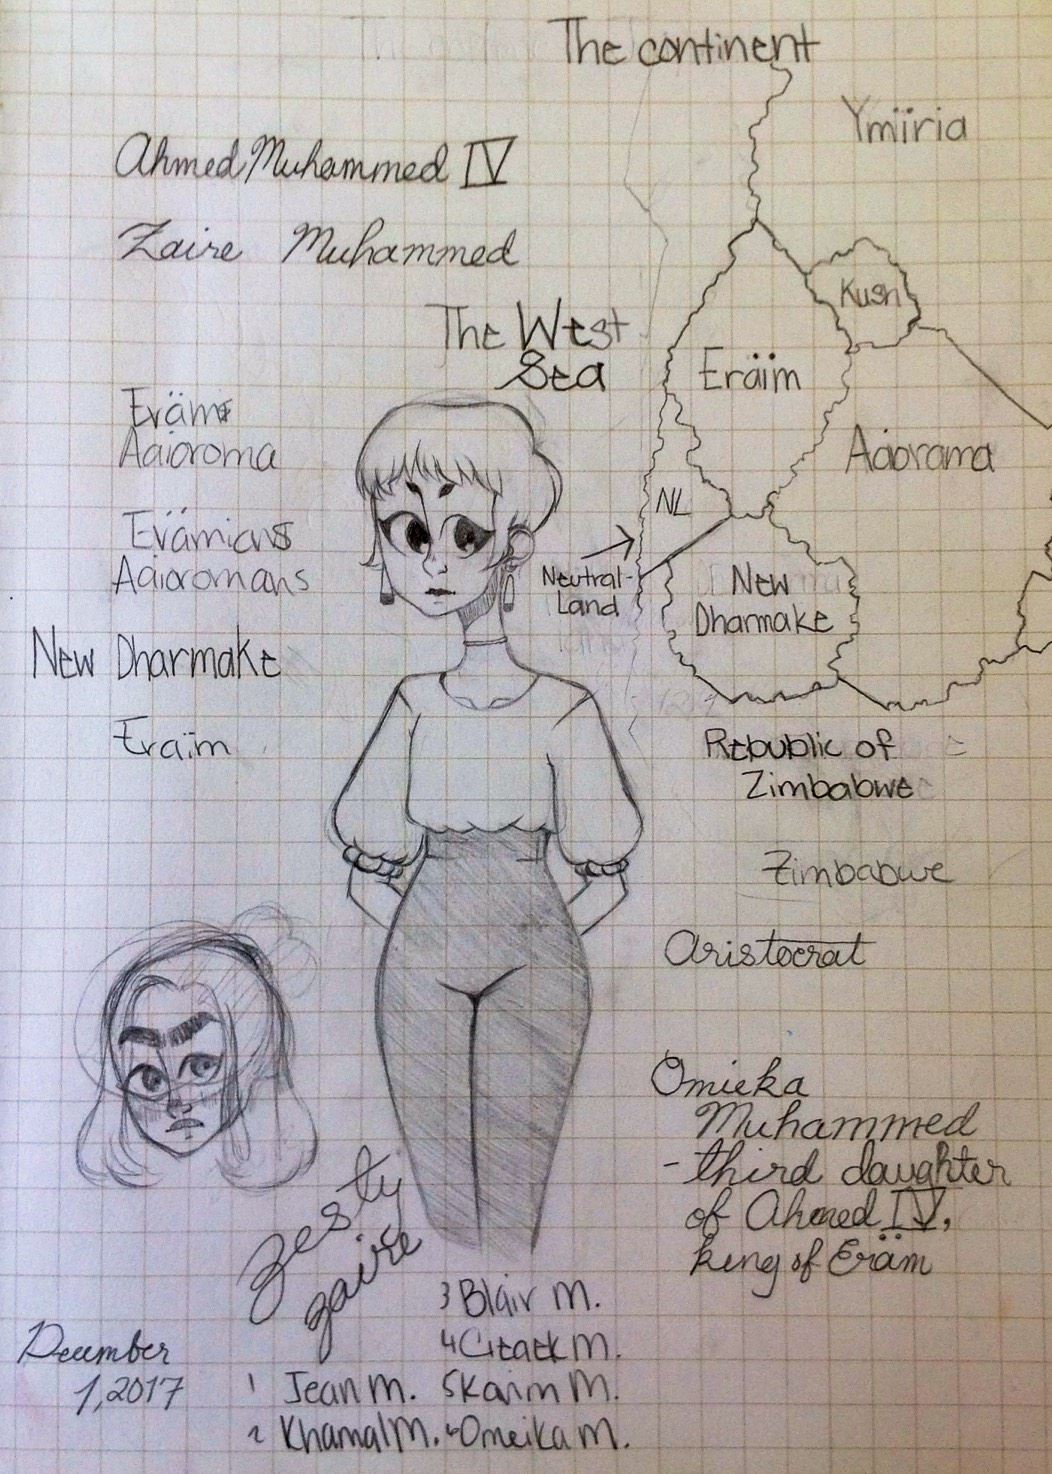 The continent
Ymïria
Ahmed Muhammed IV
Zaire Muhammed
Kush
The West
Sea
Eräïm
Eräm
Aäioroma
Aäorama
NL
Erämians
Aäioromans
Neutral-
Land
New
Dharmake
New Dharmake
Eraïm
Rebublic of
Zimbabwe
Zimbabwe
Aristocrat
Omieka
Muhammed
- third daughter
of Ahmed IV,
king of Eräm
zesty
zaire
December
1, 2017
1 Jean M.
2 Khamal M.
3 Blair M.
4 M.
5 Karim M.
6 Omeika M.